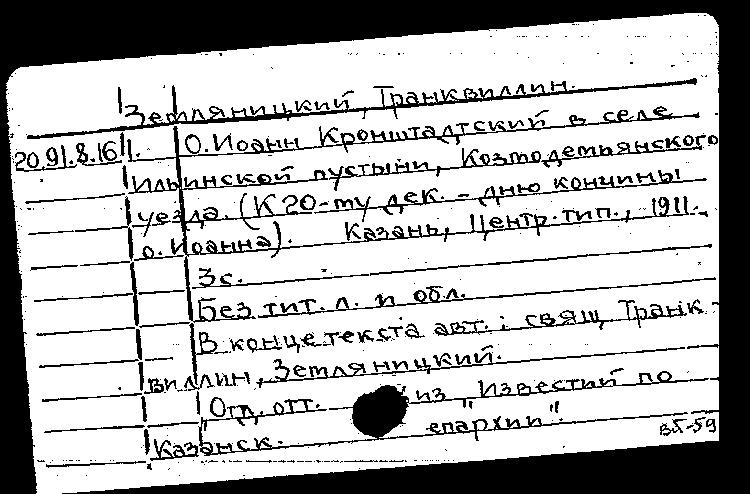 Земляницкий, Транквиллин.
20.91.8.161. О. Иоанн Кронштадтский в селе
Ильинской пустыни, Козмодемьянского
уезда. (К 20-му дек. - дню кончины
о. Иоанна). Казань, Центр. тип., 1911.
3с.
Без тит. л. и обл.
В конце текста авт.: свящ Транк-
виллин, Земляницкий.
"Отд. отт. из "Известий по
Казанск. епархии".